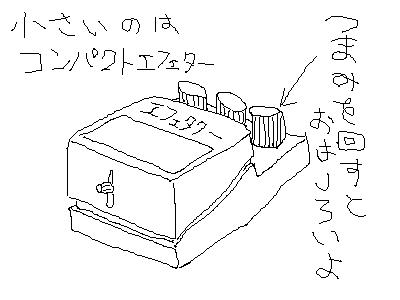 小さいのは
コンパクトエフェクター
エフェクター
つまみを回すと
おもしろいよ